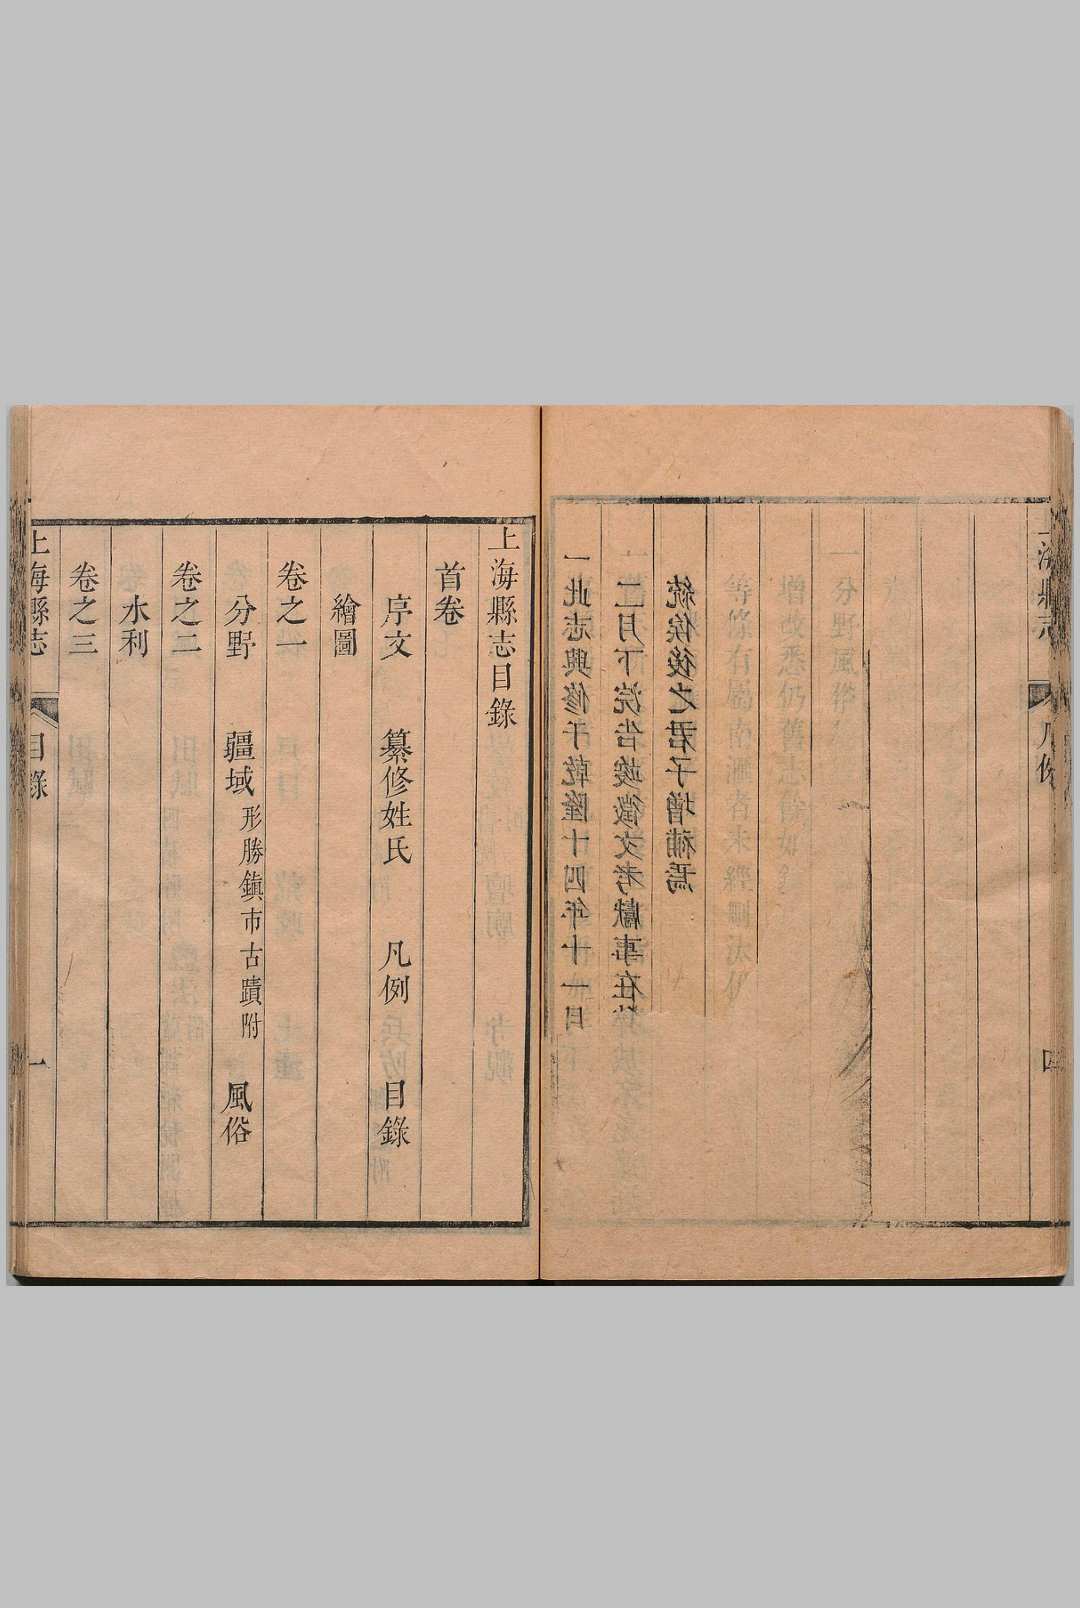 上海縣志 凡例 四
一分野風俗
增改悉仍舊志餘如
等條有屬南滙者未經刪汰
一此志興修于乾隆十四年十一月
二月下浣告竣徵文考獻事在
統俟後之君子增補焉
上海縣志目錄
首卷
序文 纂修姓氏 凡例 目錄
繪圖
卷之一
分野 疆域形勝鎮市古蹟附 風俗
卷之二
水利
卷之三
上海縣志 目錄 一